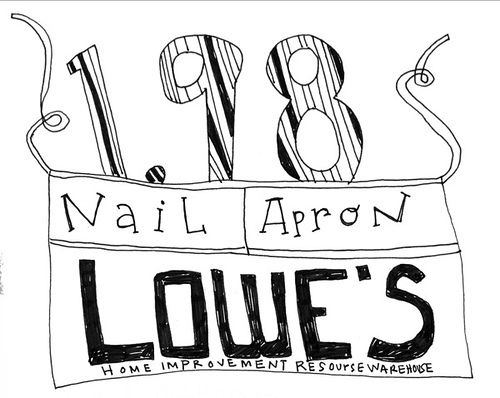 1.98
NaiL APron
LOWE'S
HOME IMPROVEMENT RESOURSE WAREHOUSE